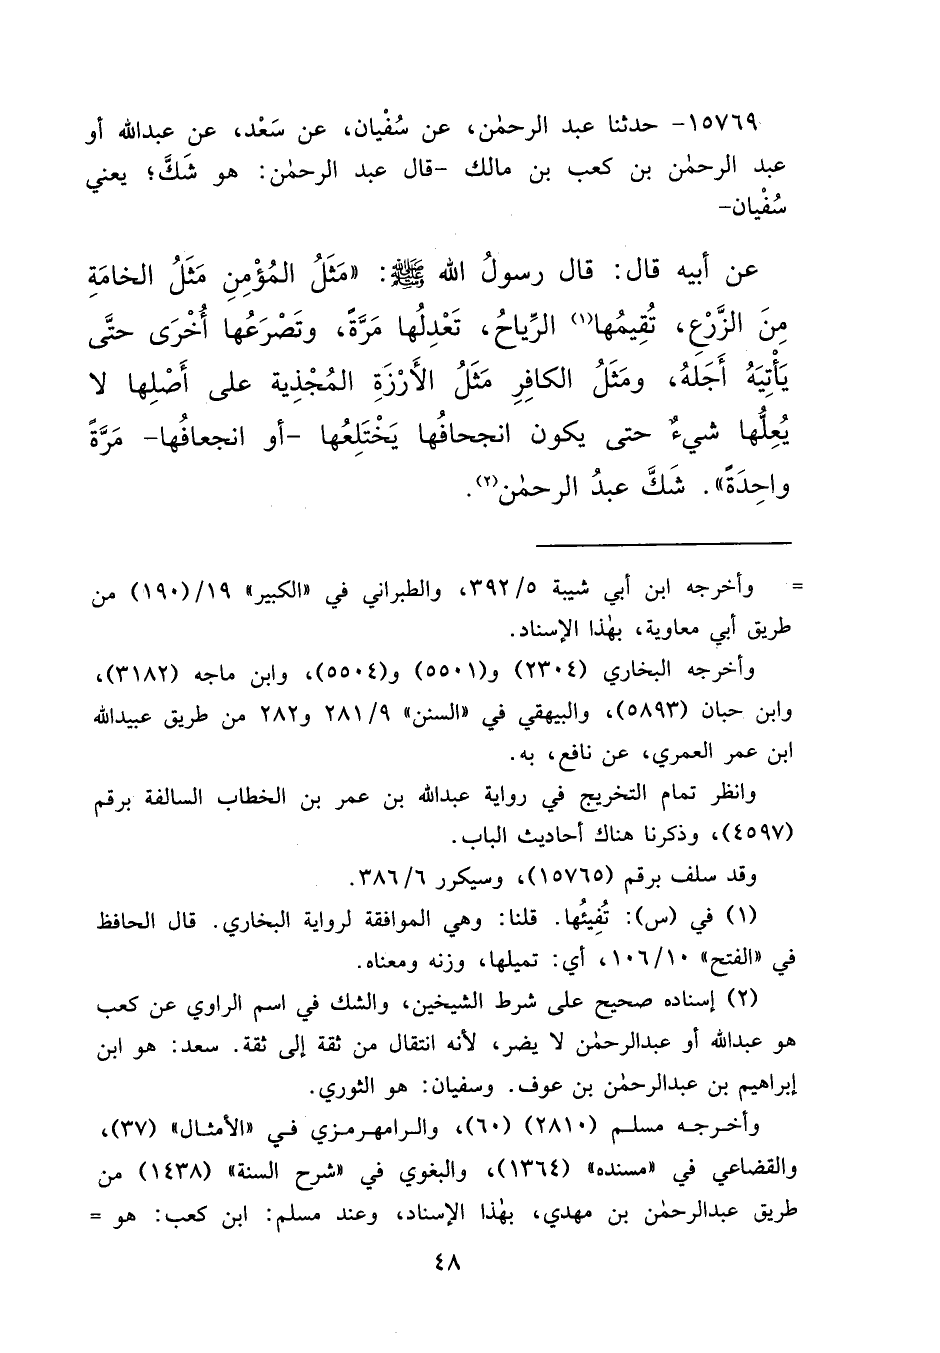 ١٥٧٦٩- حدثنا عبد الرحمٰن، عن سُفْيان، عن سَعْد، عن عبدالله أو
عبد الرحمٰن بن كعب بن مالك -قال عبد الرحمٰن: هو شَكَّ؛ يعني
سُفْيان-
عن أبيه قال: قال رسولُ الله ﷺ: «مَثَلُ المُؤْمِنِ مَثَلُ الخامَةِ
مِنَ الزَّرْعِ، تُقِيمُها(١) الرِّياحُ، تَعْدِلُها مَرَّةً، وتَصْرَعُها أُخْرَى حتَّى
يَأْتِيَهُ أَجَلهُ، ومَثَلُ الكافِرِ مَثَلُ الأَرْزَةِ المُجْذِية على أَصْلِها لا
يُعِلُّها شيءٌ حتى يكون انجحافُها يَخْتَلِعُها -أو انجعافُها- مَرَّةً
واحِدَةً». شَكَّ عبدُ الرحمٰن(٢).
= وأخرجه ابن أبي شيبة ٣٩٢/٥، والطبراني في «الكبير» ١٩/(١٩٠) من
طريق أبي معاوية، بهٰذا الإسناد.
وأخرجه البخاري (٢٣٠٤) و(٥٥٠١) و(٥٥٠٤)، وابن ماجه (٣١٨٢)،
وابن حبان (٥٨٩٣)، والبيهقي في «السنن» ٢٨١/٩ و٢٨٢ من طريق عبيدالله
ابن عمر العمري، عن نافع، به.
وانظر تمام التخريج في رواية عبدالله بن عمر بن الخطاب السالفة برقم
(٤٥٩٧)، وذكرنا هناك أحاديث الباب.
وقد سلف برقم (١٥٧٦٥)، وسيكرر ٣٨٦/٦.
(١) في (س): تُفِيئُها. قلنا: وهي الموافقة لرواية البخاري. قال الحافظ
في «الفتح» ١٠٦/١٠، أي: تميلها، وزنه ومعناه.
(٢) إسناده صحيح على شرط الشيخين، والشك في اسم الراوي عن كعب
هو عبدالله أو عبدالرحمٰن لا يضر، لأنه انتقال من ثقة إلى ثقة. سعد: هو ابن
إبراهيم بن عبدالرحمٰن بن عوف. وسفيان: هو الثوري.
وأخرجه مسلم (٢٨١٠) (٦٠)، والرامهرمزي في «الأمثال» (٣٧)،
والقضاعي في «مسنده» (١٣٦٤)، والبغوي في «شرح السنة» (١٤٣٨) من
طريق عبدالرحمٰن بن مهدي، بهٰذا الإسناد، وعند مسلم: ابن كعب: هو =
٤٨